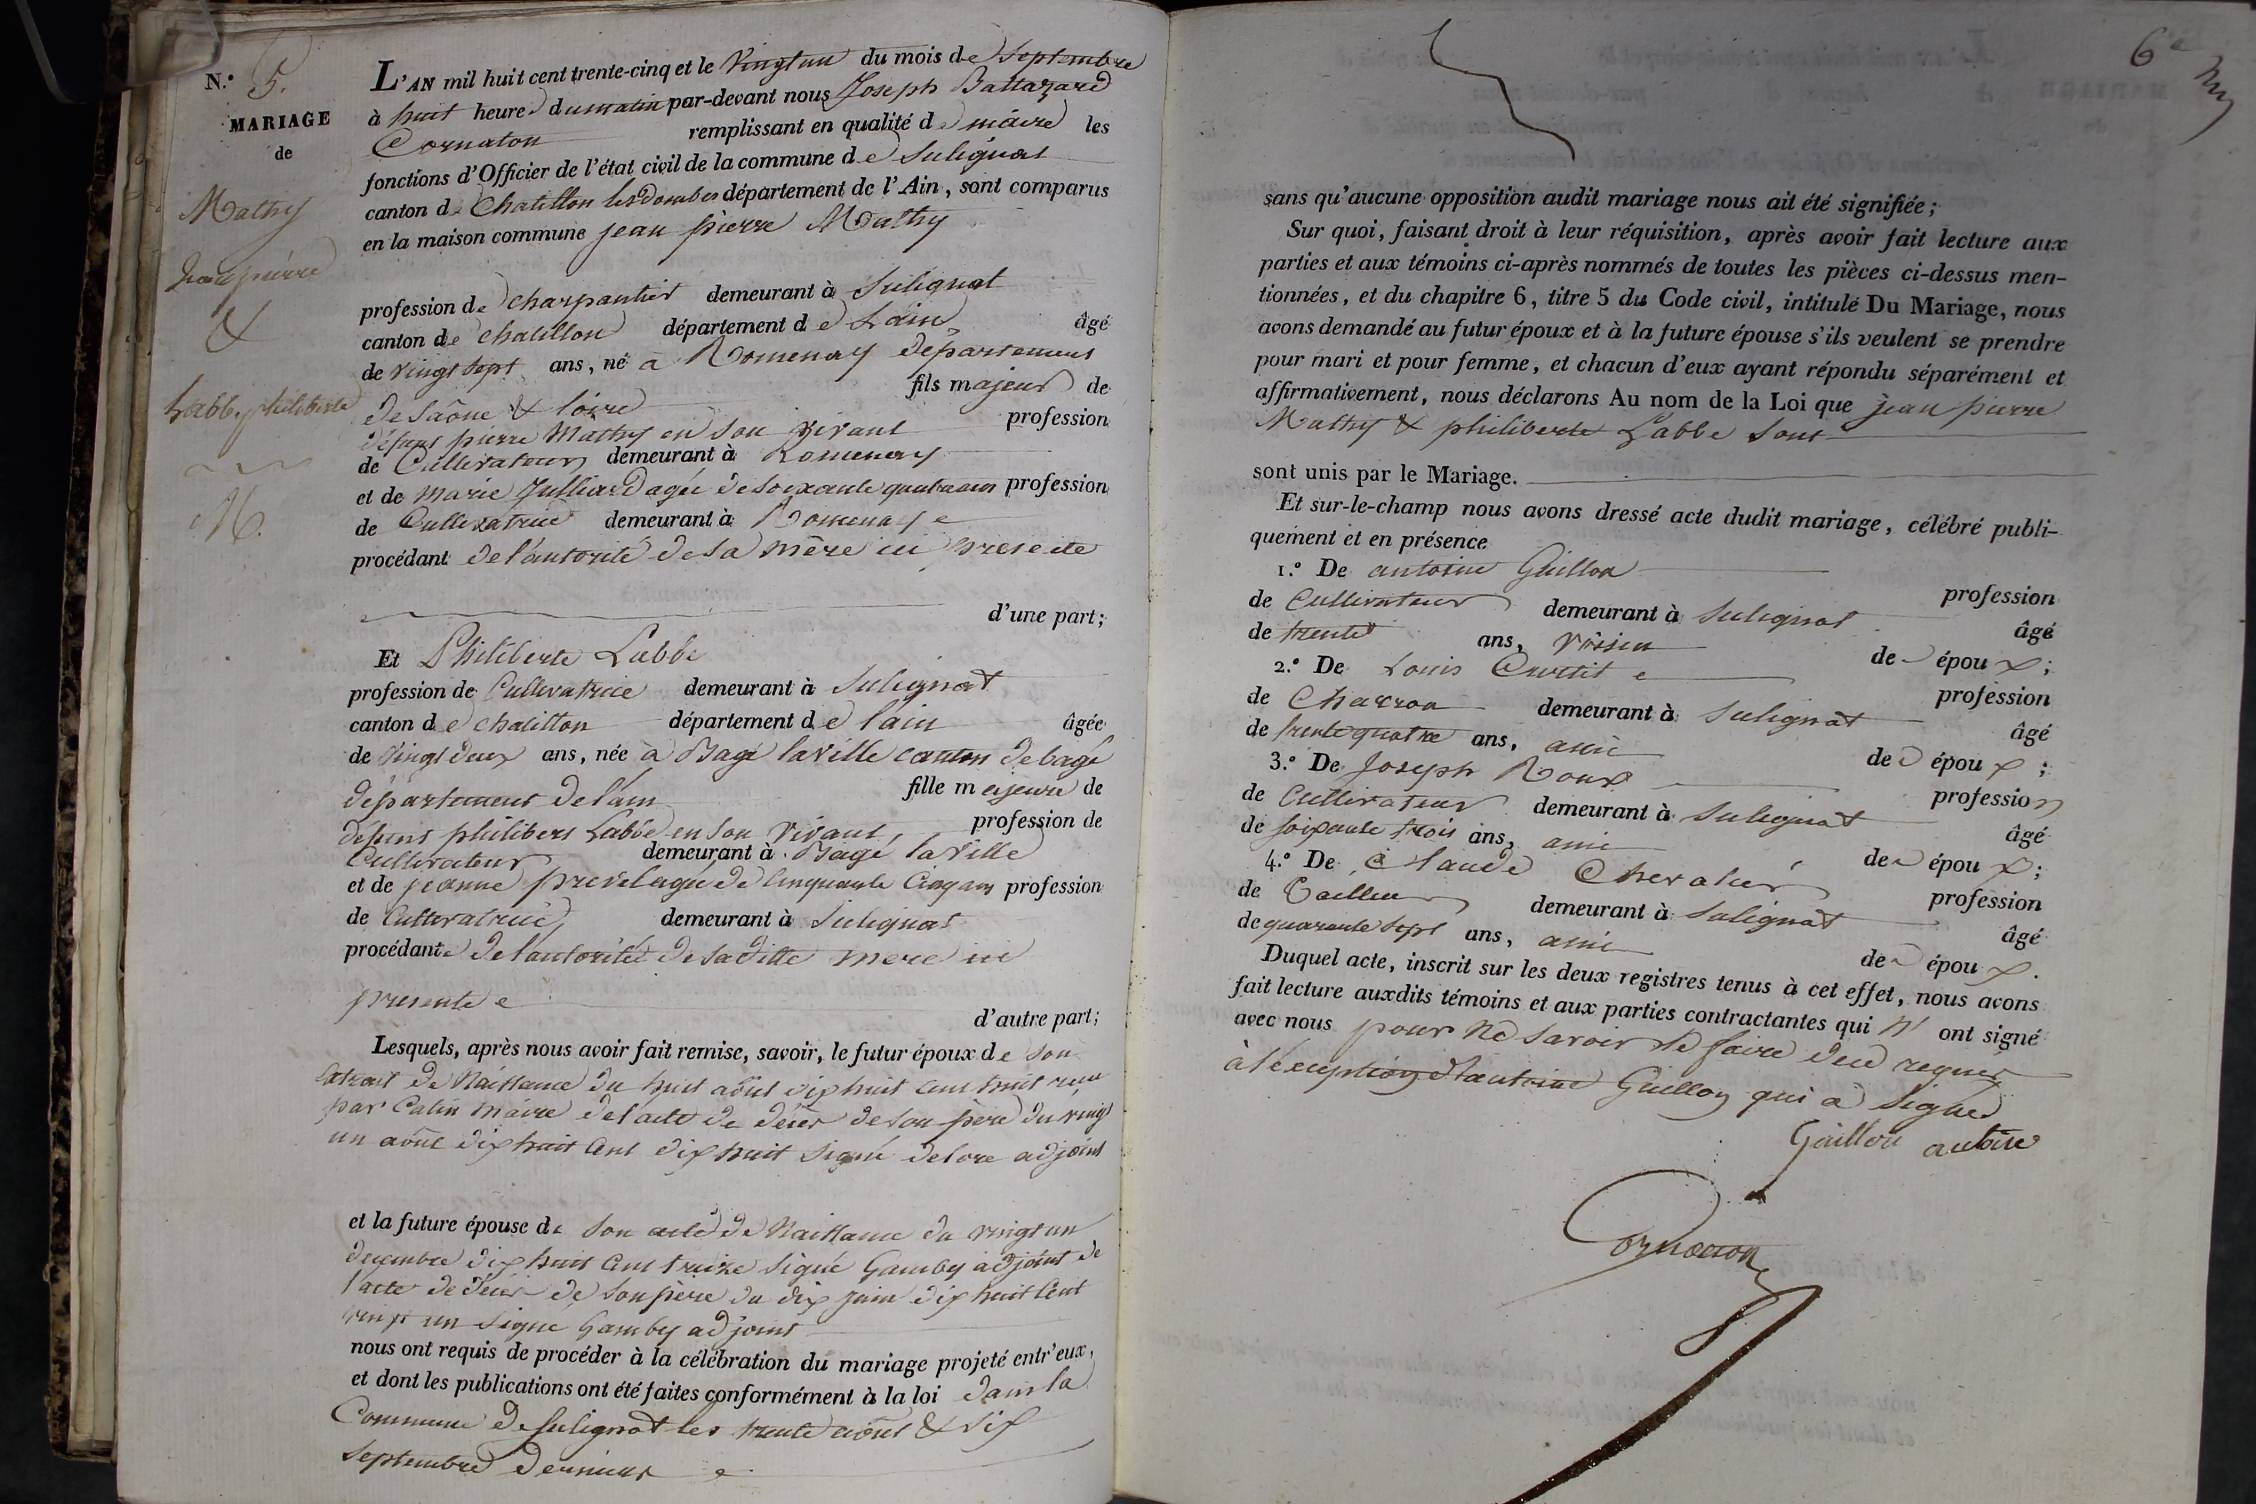 N.º 5.
MARIAGE
de
Mathy
jean pierre
&
Labbe philiberte
M.
L'AN mil huit cent trente-cinq et le vingt un du mois de septembre
à huit heures du matin par-devant nous Joseph Baltazard
Cornaton remplissant en qualité de maire les
fonctions d'Officier de l'état civil de la commune de Sulignat
canton de Chatillon les dombes département de l'Ain, sont comparus
en la maison commune jean pierre Mathy
profession de charpentier demeurant à Sulignat
canton de chatillon département de Lain âgé
de vingt sept ans, né à Romenay département
de Saône & loire fils majeur de
défunt pierre Mathy en son vivant profession
de Cultivateur demeurant à Romenay
et de marie Julliard agée de soixante quatre ans profession
de Cultivatrice demeurant à Romenay
procédant de l'autorité de sa mère ici presente
d'une part;
Et Philiberte Labbe
profession de Cultivatrice demeurant à Sulignat
canton de chatillon département de lain âgée
de vingt deux ans, née à Bagé la ville canton de bagé
département de lain fille majeure de
defunt philibert Labbe en son vivant profession de
Cultivateur demeurant à Bagé la ville
et de jeanne agée de Cinquante Cinq ans profession
de Cultivatrice demeurant à Sulignat
procédante de l'autorité de sa ditte mere ici
presente
d'autre part;
Lesquels, après nous avoir fait remise, savoir, le futur époux de son
Extrait de Naissance du huit août dix huit cent huit reçu
par Catin maire de l'acte de décès de son père du vingt
un août dix huit Cent dix huit signé delore adjoint
et la future épouse de son acte de Naissance du vingt un
decembre dix huit Cent treize signé Gamby adjoint de
l'acte de décès de son père du dix juin dix huit Cent
vingt un signé Gamby adjoint
nous ont requis de procéder à la célébration du mariage projeté entr'eux,
et dont les publications ont été faites conformément à la loi dans la
Commune de Sulignat les trente août & six
septembre derniers
6e
sans qu'aucune opposition audit mariage nous ait été signifiée;
Sur quoi, faisant droit à leur réquisition, après avoir fait lecture aux
parties et aux témoins ci-après nommés de toutes les pièces ci-dessus men-
tionnées, et du chapitre 6, titre 5 du Code civil, intitulé Du Mariage, nous
avons demandé au futur époux et à la future épouse s'ils veulent se prendre
pour mari et pour femme, et chacun d'eux ayant répondu séparément et
affirmativement, nous déclarons Au nom de la Loi que jean pierre
Mathy & philiberte Labbe sont
sont unis par le Mariage.
Et sur-le-champ nous avons dressé acte dudit mariage, célébré publi-
quement et en présence
1.º De antoine Guillon
profession
de Cultivateur demeurant à Sulignat
âgé
de trente ans, voisin de époux;
2.º De Louis Curtit
profession
de Charron demeurant à Sulignat
âgé
de trente quatre ans, ami de époux;
3.º De Joseph Roux
profession
de Cultivateur demeurant à Sulignat
âgé
de soixante trois ans, ami de époux;
4.º De Claude Chevalier
profession
de Tailleur demeurant à Sulignat
âgé
de quarante sept ans, ami de époux.
Duquel acte, inscrit sur les deux registres tenus à cet effet, nous avons
fait lecture auxdits témoins et aux parties contractantes qui n' ont signé
avec nous pour ne savoir le faire de ce requis
à l'exception d'antoine Guillon qui a signé
Guillon antoine
Cornaton